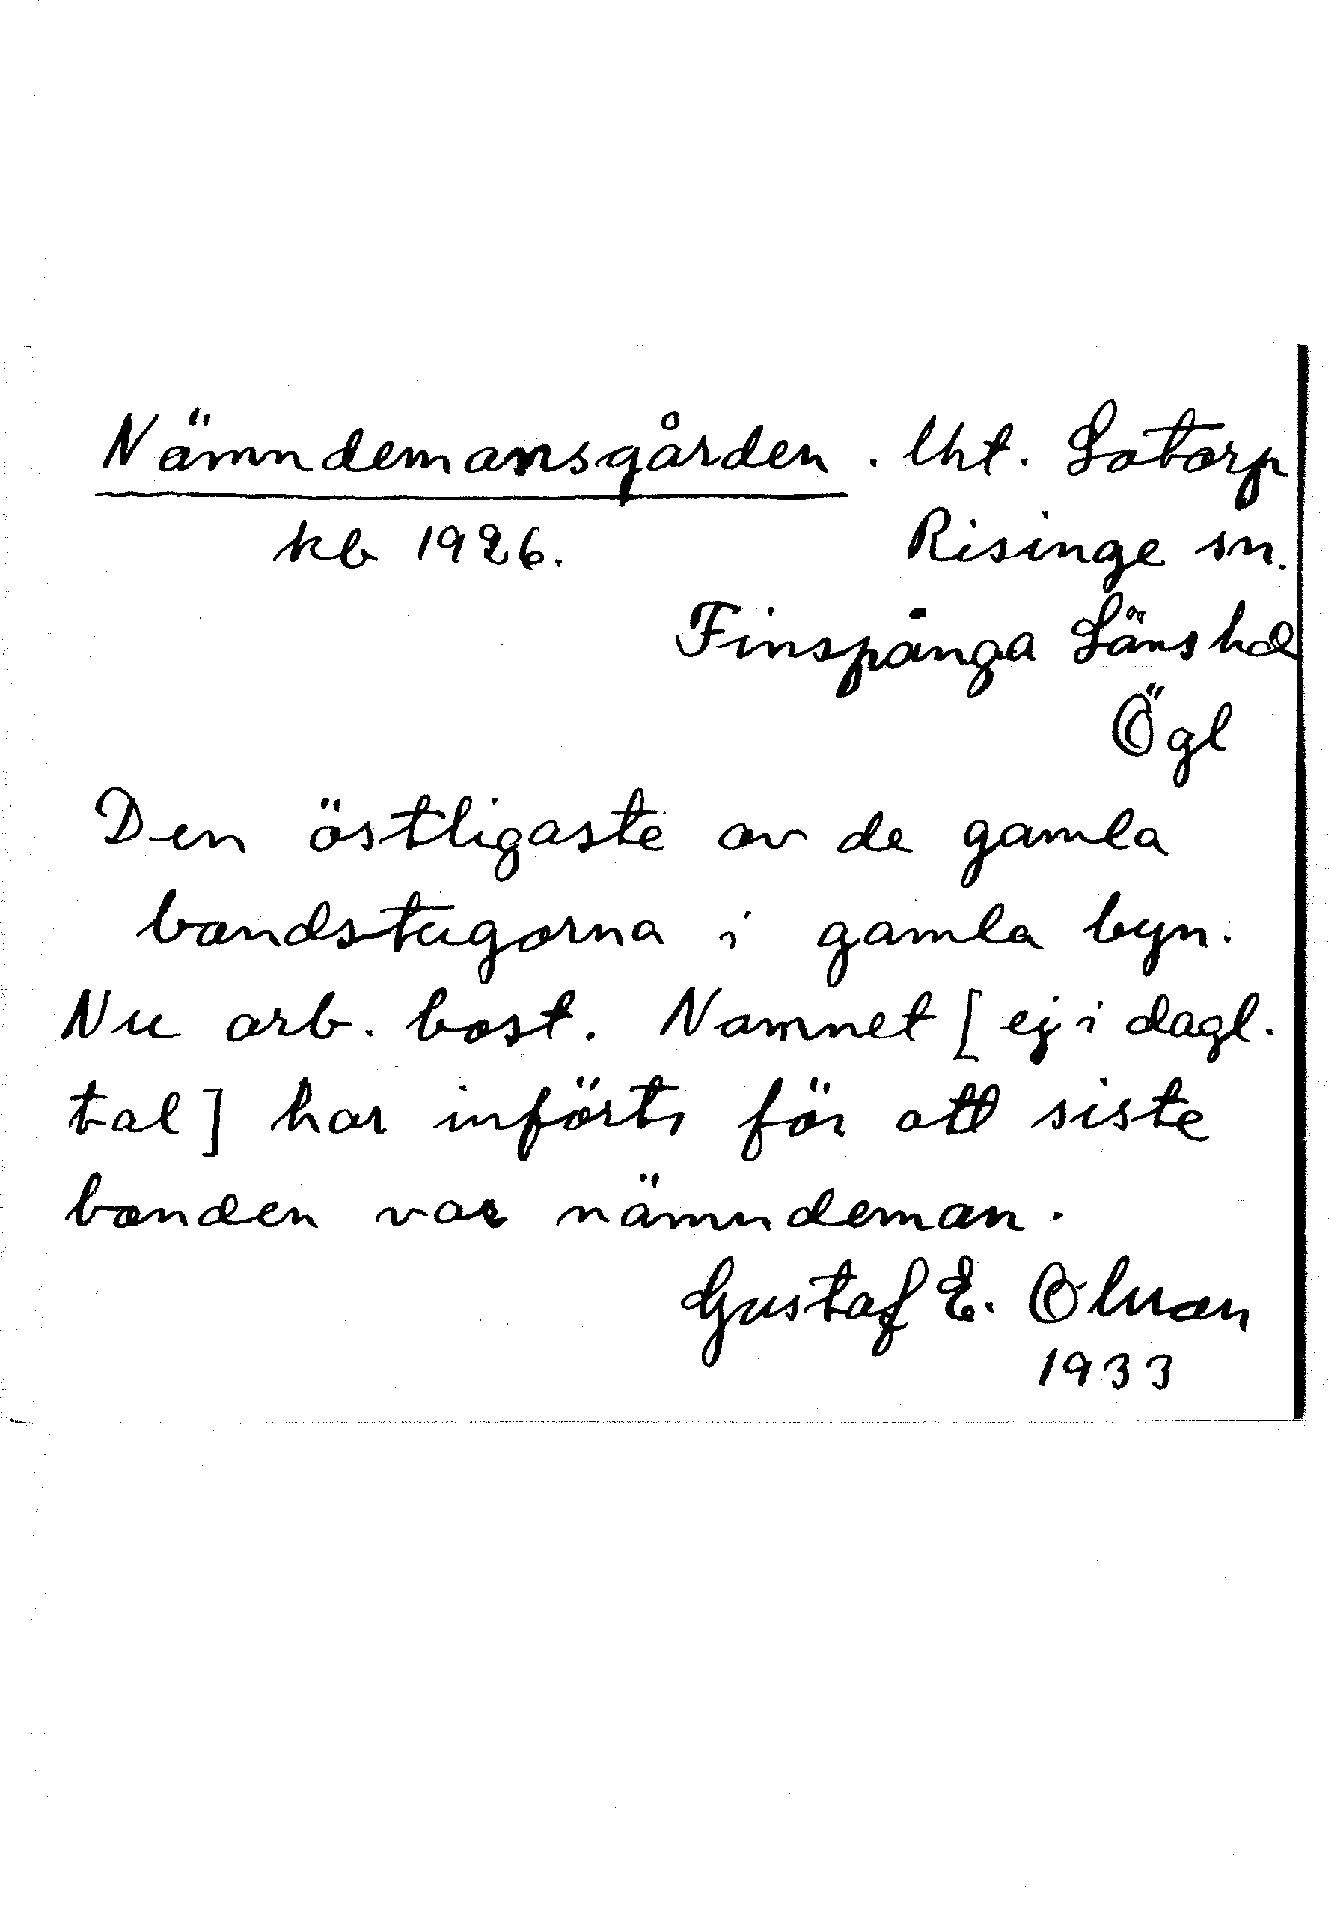 Nämndemansgården. lht. Lotorp
kb 1926. Risinge sn.
Finspånga Länshd
Ögl
Den östligaste av de gamla
bondstugorna i gamla byn.
Nu arb. bost. Namnet [ej i dagl.
tal] har införts för att siste
bonden var nämndeman.
Gustaf E. Olman
1933